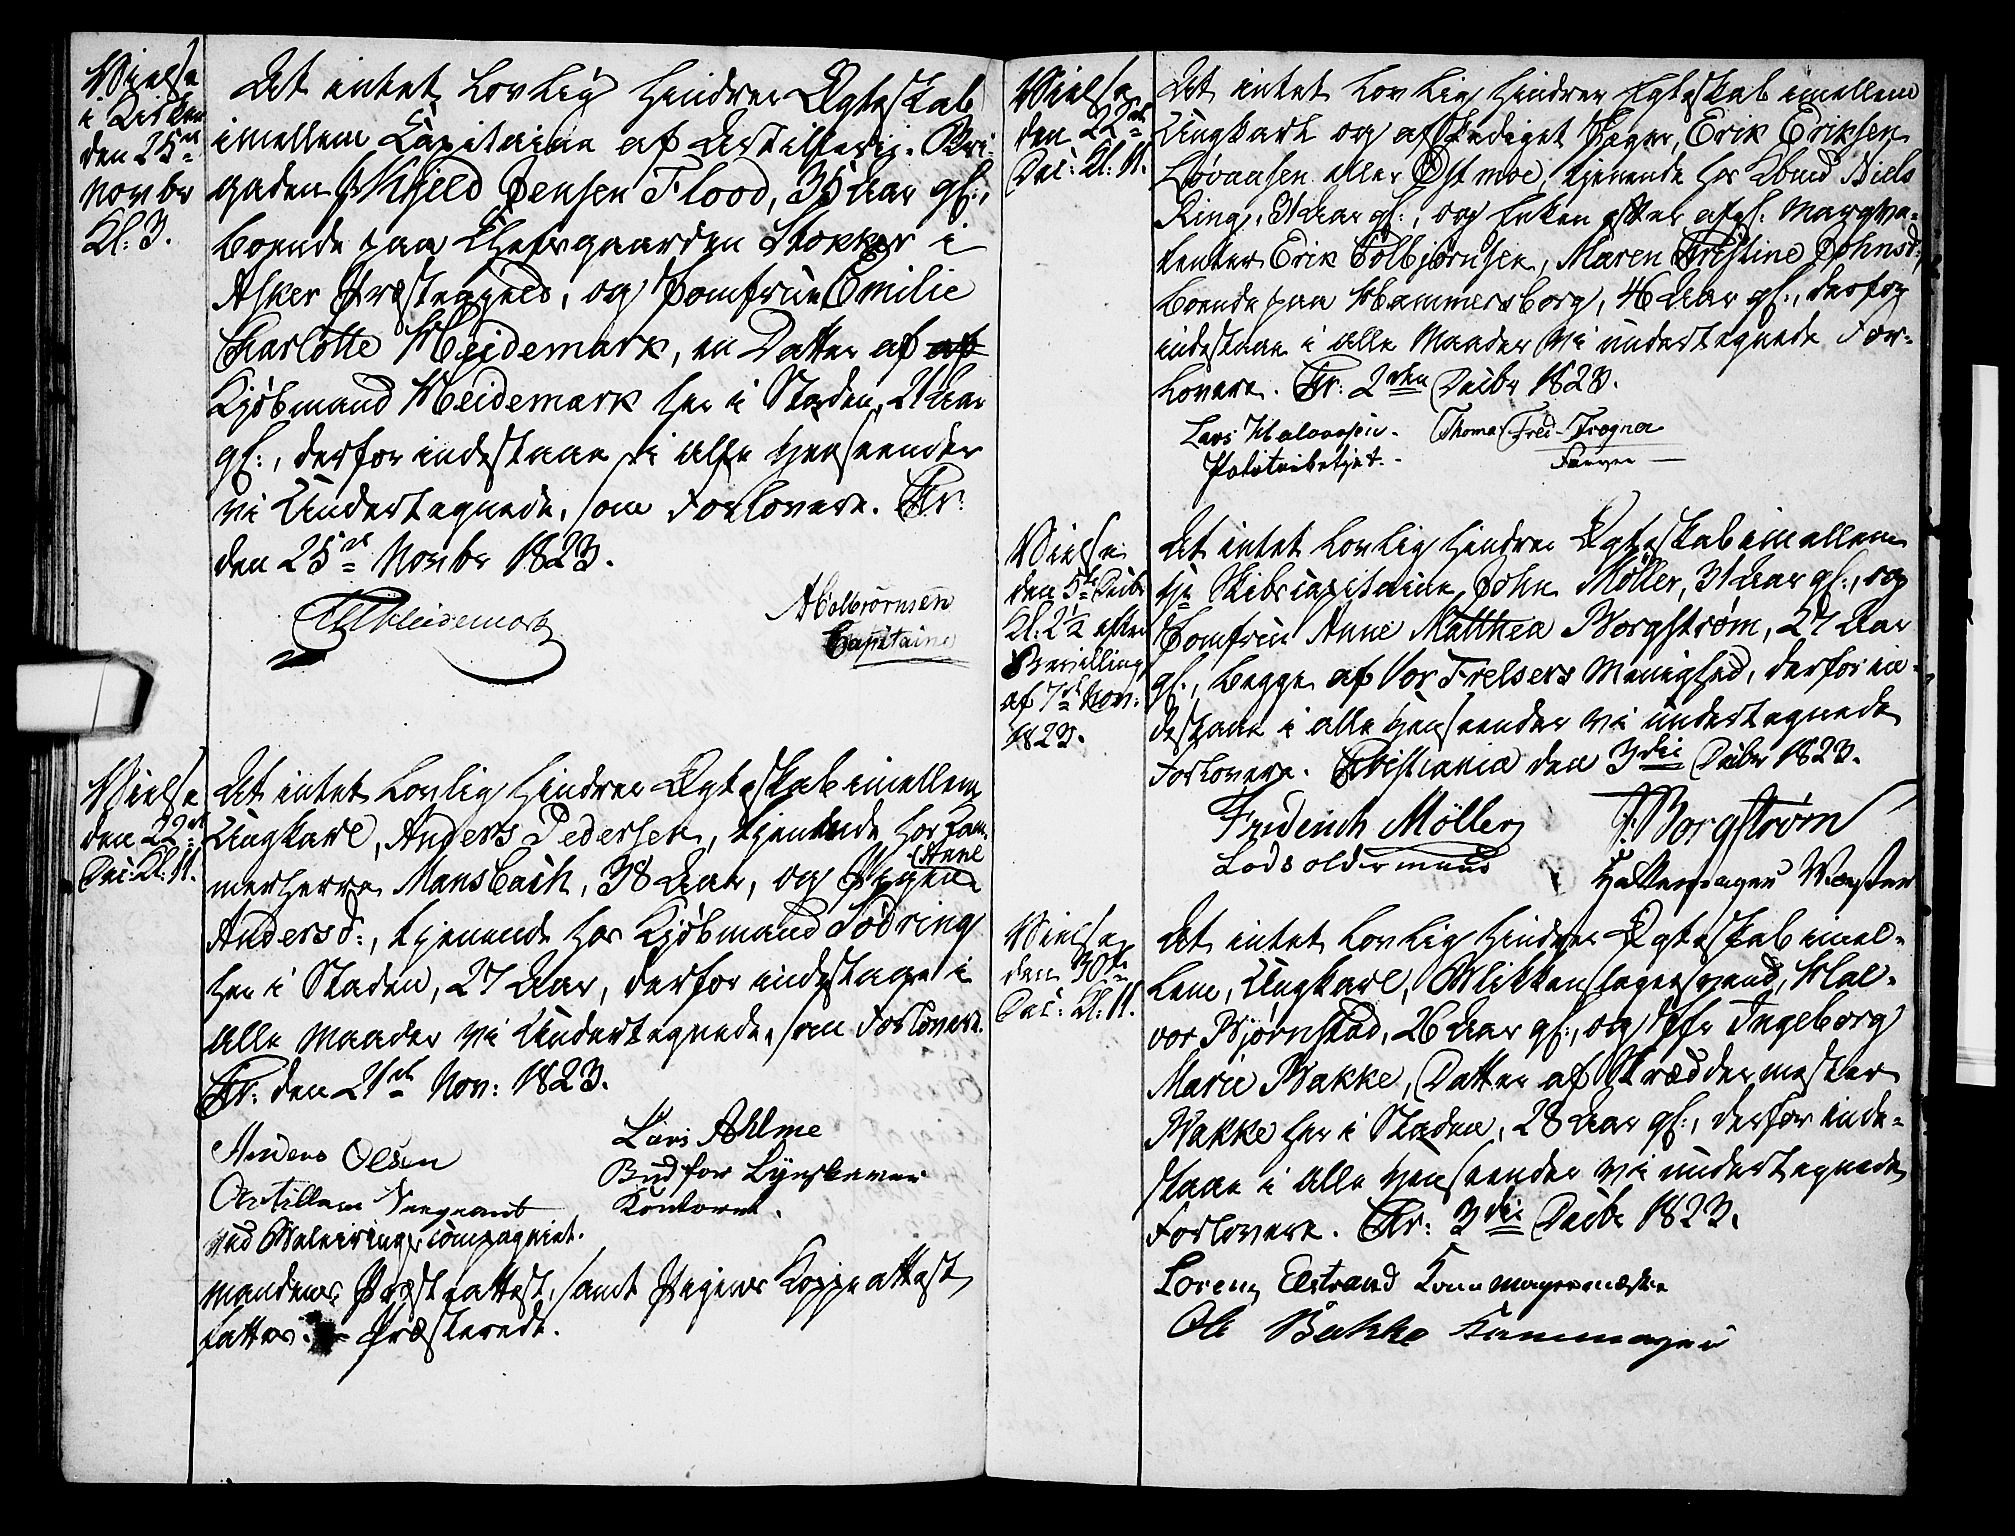 Vielse
i Kirken
den 25de
Novbr
Kl: 3.
At intet Lovlig hindrer Ægteskab
imellem Capitaine af Artilleri-Bri-
gaden Kield Jensen Flood, 35 Aar gl:,
boende paa Chefsgaarden Stokker i
Asker Præstegjeld, og Jomfrue Emilie
Charlotte Heidemark, en Datter af af
Kjøbmand Heidemark her i Staden, 21 Aar
gl:, derfor indestaae i alle Henseender
vi Undertegnede, som Forlovere. Chr:
den 25de Novbr 1823.
Heidemark
Capitaine
Vielse
den 22de
Dec: Kl: 11.
At intet Lovlig hindrer Ægteskab imellem
Ungkarl, Anders Pedersen, tjenende hos Kam-
merherre Mansbach, 38 Aar, og Pigen Anne
Andersd:, tjenende hos Kjøbmand Tødring
her i Staden, 27 Aar, derfor indestaae i
alle Maader vi Undertegnede, som Forlovere.
Chr: den 21de Nov: 1823.
Anders Olsen
Artillerie Sergeant
ved compagniet.
Lars Ahlme
Bud for
Kontoret.
Mandens Præsteattest, samt Pigens Koppeattest
fattes. Præsterede.
Vielse
den 22de
Dec: Kl: 11.
At intet Lovlig hindrer Egteskab imellem
Ungkarl og afskediget Jæger, Erik Eriksen
Løvaasen eller Østmoe, tjenende hos Kbmd Niels
Ring, 31 Aar gl:, og Enken efter afgl: Marqve-
tenter Erik Tolbjørnsen, Maren Christine Johnsd:,
boende paa Hammersborg, 46 Aar gl:, derfor
indestaae i alle Maader vi undertegnede For-
lovere. Chr: 2den Decbr 1823.
Lars Halvorsen
Politiebetjet.
Thomas Fred. Trogner
Farver
Vielse
den 5te Decbr
Kl: 2½ efter
Bevilling
af 7de Nov:
1823.
At intet Lovlig hindrer Ægteskab imellem
Hr Skibscapitaine John Möller, 31 Aar gl:, og
Jomfrue Anne Matthea Borgstrøm, 27 Aar
gl:, begge af Vor Frelsers Menighed, derfor in-
destaae i alle Henseender vi undertegnede
Forlovere. Christiania den 3die Decbr 1823.
Friderich Möller
Lodsoldermand
J: Borgstrøm
Vielse
den 30te
Dec: Kl: 11.
At intet Lovlig hindrer Ægteskab imel-
lem, Ungkarl, Blikkenslagersvend, Hal-
vor Bjørnstad, 26 Aar gl:, og Jfr Ingeborg
Marie Bakke, Datter af Skræddermester
Bakke her i Staden, 28 Aar gl:, derfor inde-
staae i alle Henseender vi undertegnede
Forlovere. Chr: 3die Decbr 1823.
Lorenz Elstrand Kammagermester
Ole Bakke Kammager